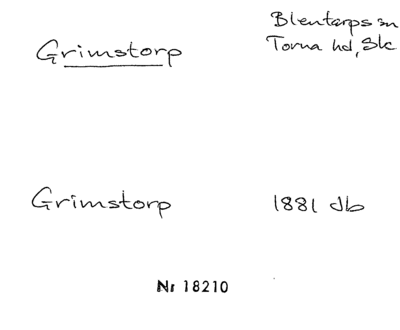 Grimstorp
Blentarps sn
Torna hd, Sk
Grimstorp
1881 db
Nr 18210